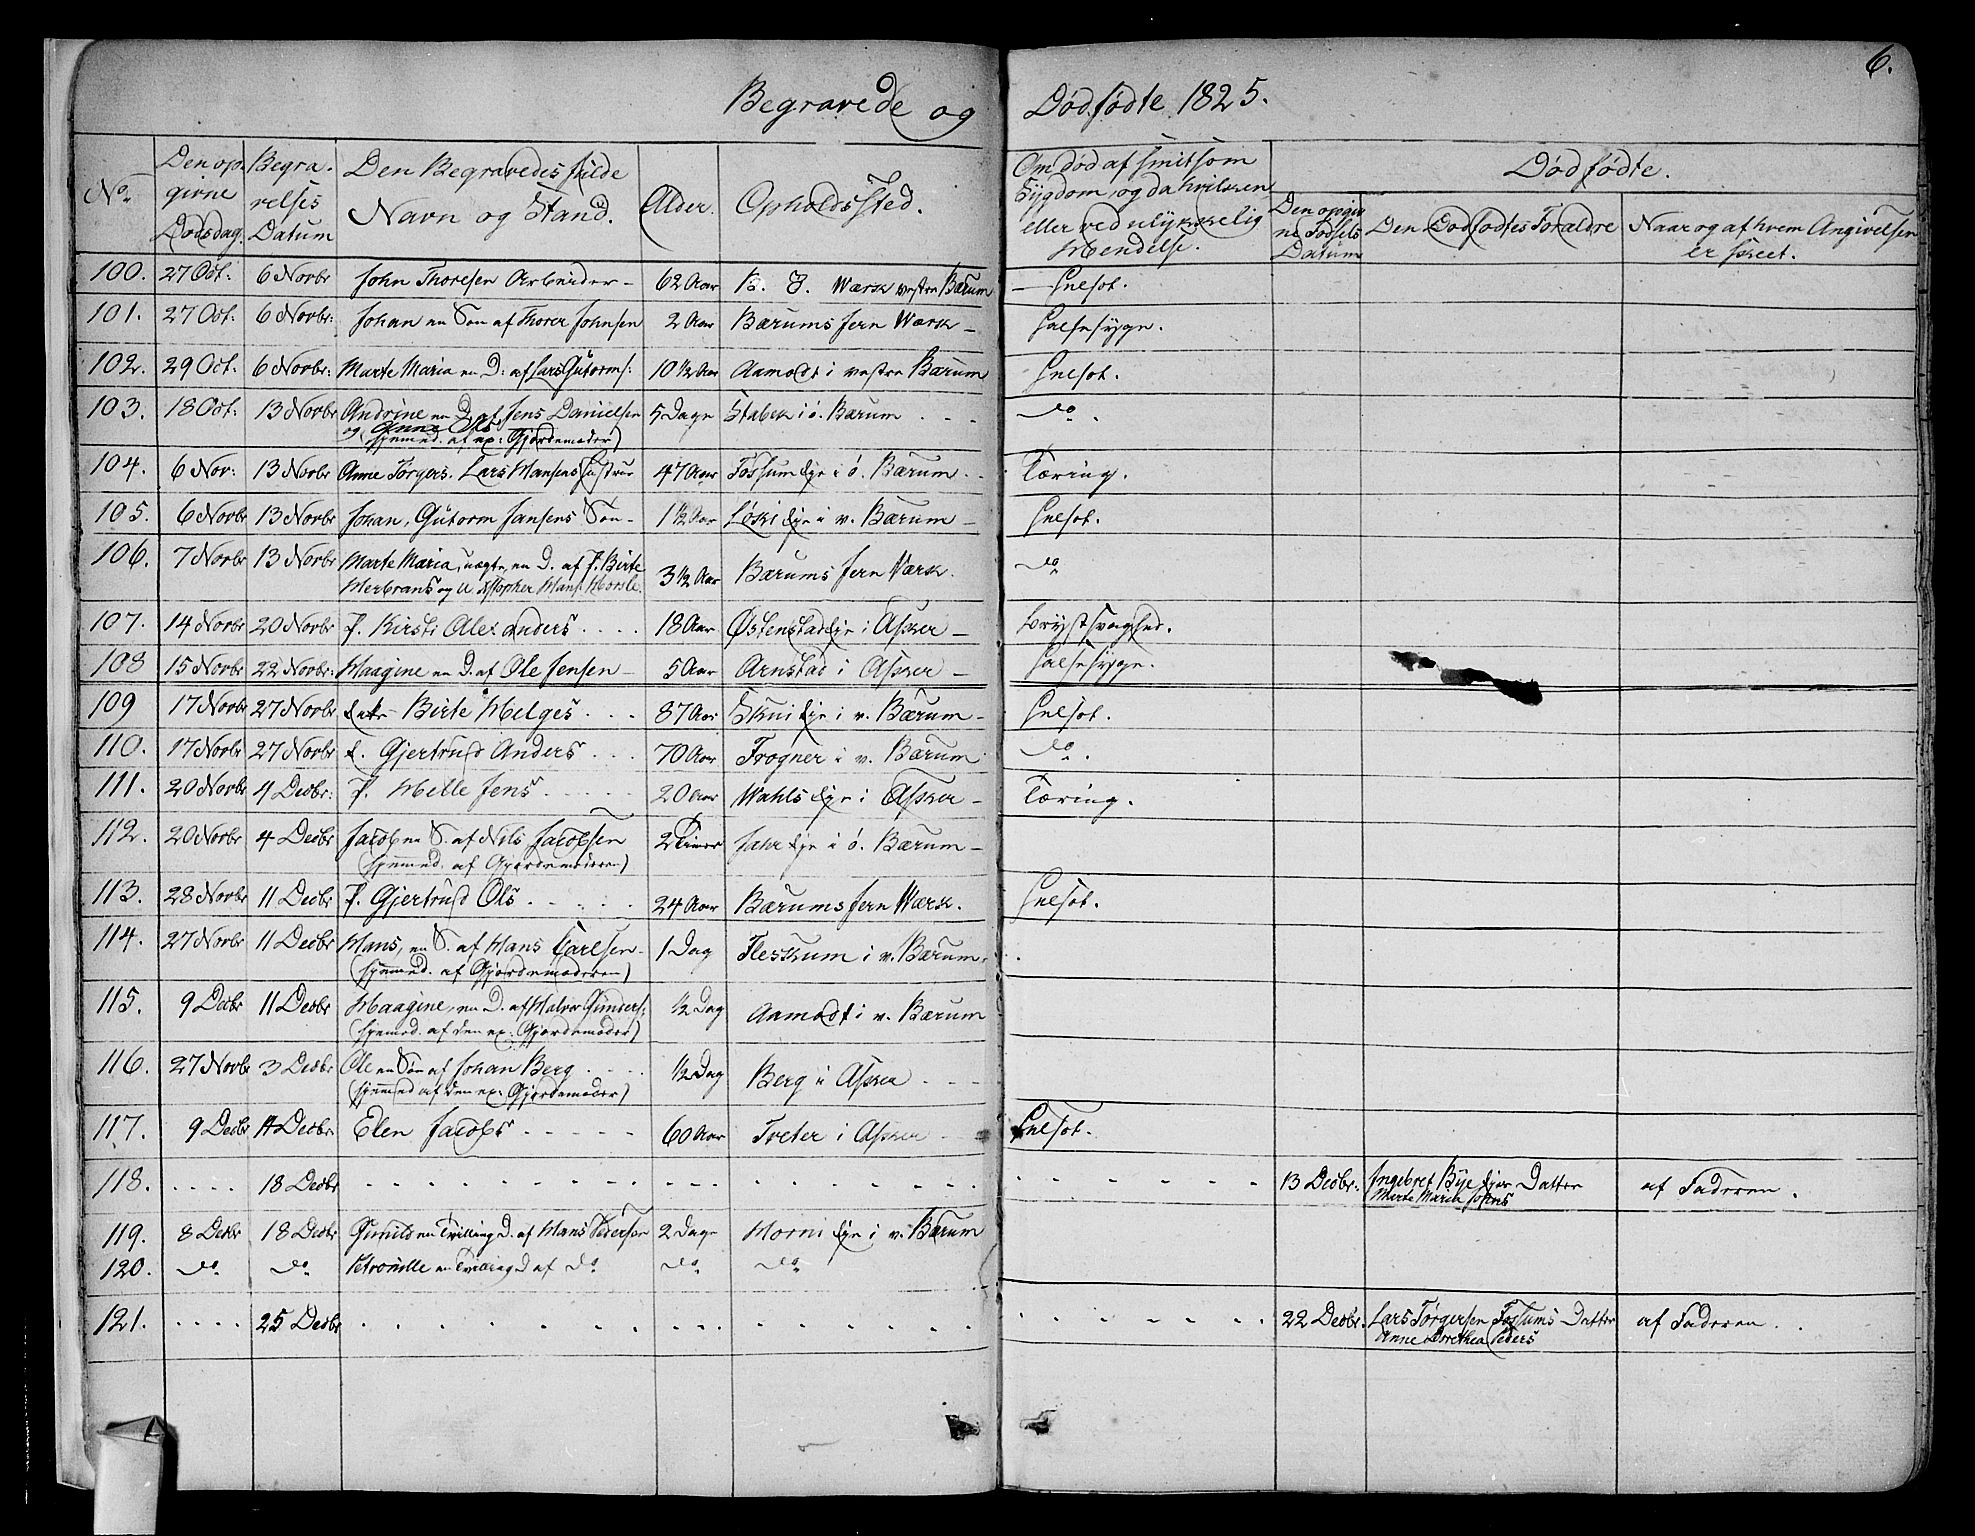 6.
Begravede og Dødfødte 1825.
No. Den op- Begra- Den Begravedes fulde Alder. Opholdssted. Om død af smitsom Dødfødte.
givne relses Navn og Stand. Sygdom, og da hvilken Den opgiv- Den Dødfødtes Forældre Naar og af hvem Angivelsen
Dødsdag. Datum eller ved ulykkelig ne Fødsels er skeet.
Hendelse. Datum
100. 27 Oct: 6 Novbr John Thoresen Arbeider - 62 Aar B. J. Wærk vestre Bærum - Helsot.
101. 27 Oct: 6 Novbr: Johan en Søn af Thorer Johnsen 2 Aar Bærums Jern Værk - Halsesyge.
102. 29 Oct: 6 Novbr: Marte Maria en D: af Lars Gutorms: 10 ½ Aar Aamodt i vestre Bærum Helsot.
103. 18 Oct: 13 Novbr Andrine en D. af Jens Danielsen 5 Dage Stabek i ø. Bærum do.
og Anne Ols
(hjemmed. af ex: Gjordemoder)
104. 6 Nov: 13 Novbr Anne Torgers. Lars Hansens Hustrue 47 Aar Fossum Eje i ø. Bærum. Tæring.
105. 6 Novbr 13 Novbr Johan, Gutorm Jansens Søn - 1 ½ Aar Løki Eje i v. Bærum - Helsot.
106. 7 Novbr 13 Novbr Marte Maria, uægte, en D. af P. Birte 3 ½ Aar Bærums Jern Værk. do
Herbrans og U
107. 14 Novbr 20 Novbr P. Kirsti Alexanders .... 18 Aar Østenstad Eje i Asker - Brystsvaghed.
108 15 Novbr 22 Novbr: Haagine en D. af Ole Jensen - 5 Aar Arnstad i Asker - Halsesyge.
109 17 Novbr 27 Novbr Enke Birte Helges ... 87 Aar Skui Eje i v. Bærum - Helsot.
110. 17 Novbr 27 Novbr E. Gjertrud Anders ... 70 Aar Frogner i v. Bærum do.
111. 20 Novbr 4 Decbr: P. Helle Jens ..... 20 Aar Wahls Eje i Asker - Tæring.
112. 20 Novbr 4 Decbr Jacob en S. af Nils Jacobsen 2 Timer Jahr Eje i ø. Bærum -
(hjemmed. af Gjordemoderen)
113. 28 Novbr 11 Decbr P. Gjertrud Ols ..... 24 Aar Bærums Jern Værk. Helsot.
114. 27 Novbr 11 Decbr Hans, en S. af Hans Carlsen - 1 Dag Fleskum i v. Bærum.
(hjemmed. af Gjordemoderen)
115. 9 Decbr 11 Decbr Haagine, en D. af Halvor Gunders: ½ Dag Aamodt i v. Bærum
(hjemmed. af den ex: Gjordemoder)
116. 27 Novbr 3 Decbr Ole en Søn af Johan Berg .... ½ Dag Berg i Asker ...
(hjemmed af den ex: Gjordemoder)
117. 9 Decbr 11 Decbr Elen Jacobs ..... 60 Aar Tveter i Asker - Helsot.
118. .... 18 Decbr 13 Decbr: Ingebret Bye Ejes Datter af Faderen.
Marte Marie Johns
119. 8 Decbr 18 Decbr Gunild en Tvilling D. af Hans Pedersen 2 Dage Horni Eje i v. Bærum
120. do do Petronille en Tvilling D af do do do
121. .... 25 Decbr 22 Decbr. Lars Torgersen Fossums Datter af Faderen ..
Anne Dorethea Peders